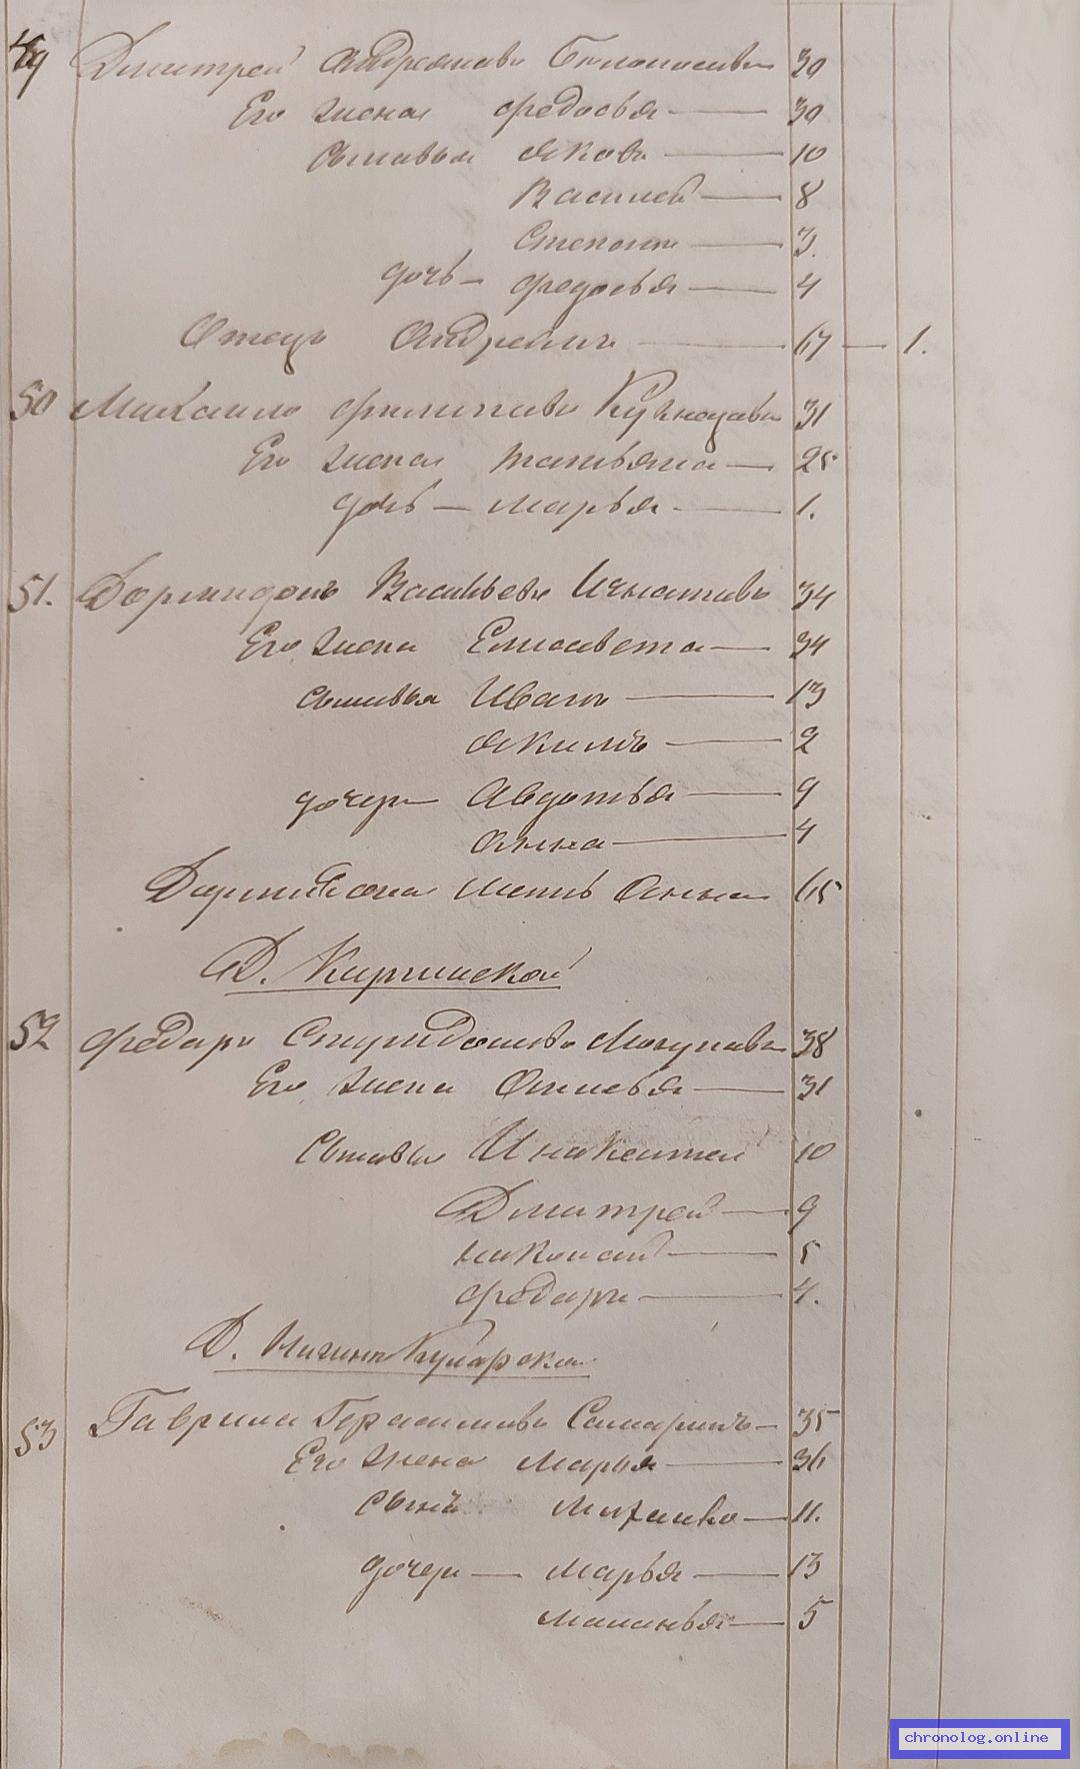 49 Дмитрей Андреановъ Белоносовъ 30
Его жена Федосья 30
Сыновья Яковъ 10
Василей 8
Степанъ 3.
дочь Федосья 4
Отецъ Андреянъ 67 1.
50 Михаило Филиповъ Кузнецовъ 31
Его жена Татьяна 25
дочь Марья 1.
51. Дормидонъ Васильевъ Игнатовъ 34
Его жена Елисавета 34
сыновья Иванъ 13
Якимъ 2
дочери Авдотья 9
Анна 4
Дормидона мать Анна 65
Д. Киргинской
52 Федоръ Спиридоновъ 38
Его жена Офимья 31
Сыновья Инокентей 10
Дмитрей 9
Николай 5
Федоръ 4.
Д.
53 Гаврила Герасимовъ Самаринъ 35
Его жена Марья 36
сынъ Михайло 11.
дочери Марья 13
Маланья 5
chronolog.online